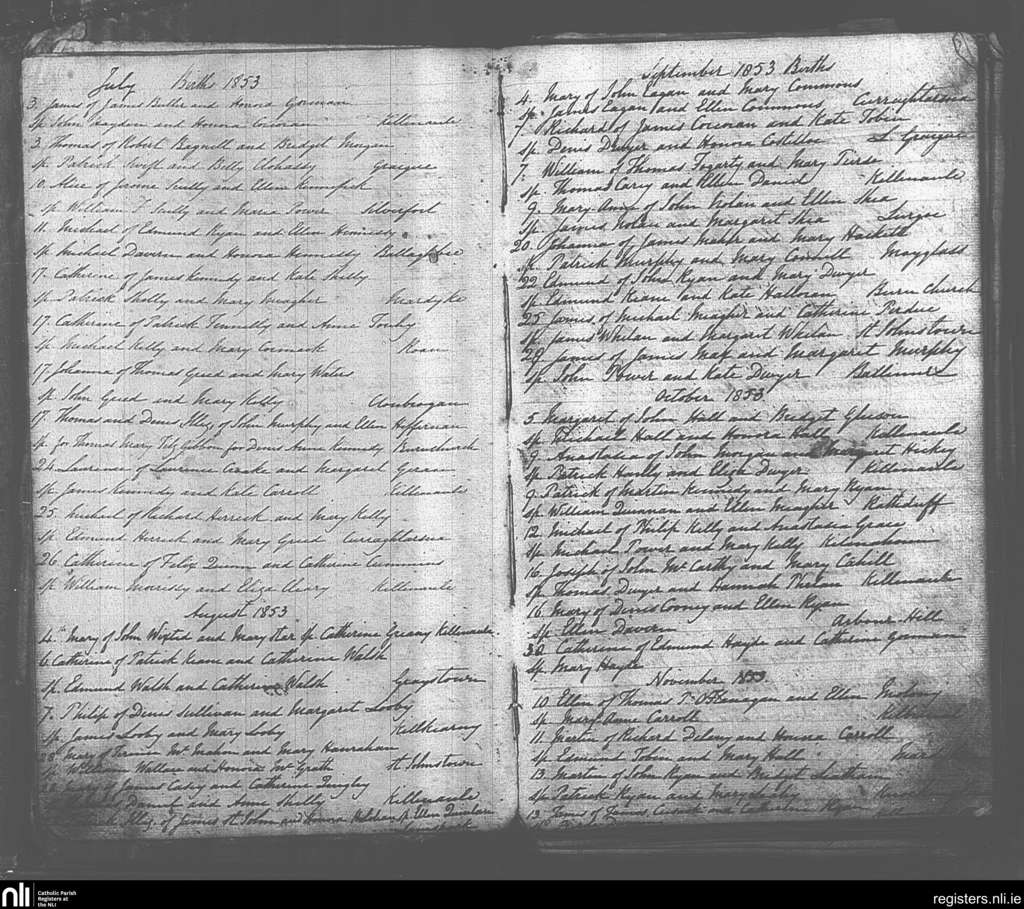 July Births 1853
3. James of James Butler and Honora Gorman
sp John Hayden and Honora Corcoran Killenaule
3. Thomas of Robert Bagnell and Bridget Morgan
sp Patrick Swift and Betty Graigue
10. Alice of Jerome Scully and Ellen
sp William T. Scully and Maria Power Silverfort
11. Michael of Edmund Ryan and Ellen Hennessy
sp Michael Davern and Honora Hennessy
17. Catherine of James Kennedy and Kate Shelly
sp Patrick Shelly and Mary Meagher Mardyke
17. Catherine of Patrick Fennelly and Anne
sp Michael Kelly and Mary Cormack
17. Johanna of Thomas Gued and Mary Waters
sp John Gued and Mary Kelly
17. Thomas and Denis Illeg. of John Murphy and Ellen Heffernan
sp for Thomas Mary FitzGibbon for Denis Anne Kennedy Burnchurch
24. Laurence of Laurence and Margaret
sp James Kennedy and Kate Carroll Killenaule
25. Michael of Richard Herrick and Mary Kelly
sp Edmund Herrick and Mary Gued Curraghtarsna
26. Catherine of Felix Quinn and Catherine Cummins
sp William Morrissy and Eliza Cleary Killenaule
August 1853
4. Mary of John Wixted and Mary Star sp. Catherine Greany Killenaule.
6. Catherine of Patrick Keane and Catherine Walsh
sp. Edmund Walsh and Catherine Walsh Graystown
7. Philip of Denis Sullivan and Margaret Looby
sp James Looby and Mary Looby
Mary of Mc Mahon and Mary Hanrahan
sp. William Wallace and Honora Mc Grath St Johnstown
Mary of James Casey and Catherine Quigley
Daniel and Anne Shelly Killenaule
Illeg. of James St. John and Honora sp. Ellen
September 1853 Births
4. Mary of John Eagan and Mary Commons
sp. James Eagan and Ellen Commons Curraghtarsna
7 Richard of James Corcoran and Kate Tobin
sp. Denis Dwyer and Honora Costelloe L. Graigue
7. William of Thomas Fogarty and Mary
sp. Thomas Carey and Ellen Daniel Killenaule
9. Mary Anne of John Nolan and Ellen Shea
sp. James Nolan and Margaret Shea Lurgoe
20. Johanna of James Maher and Mary Hackett
sp. Patrick Murphy and Mary Moyglass
22 Edmund of John Ryan and Mary Dwyer
sp Edmund Keane and Kate Halloran Burn Church
25. James of Michael Meagher and Catherine Perdue
sp. James Whelan and Margaret Whelan St Johnstown
28. James of James and Margaret Murphy
sp. John Power and Kate Dwyer
October 1853
5. Margaret of John Hall and Bridget Gleeson
sp. Michael Hall and Honora Hally Killenaule
9. Anastasia of John Morgan and Margaret Hickey
sp Patrick Hanly and Eliza Dwyer Killenaule
9. Patrick of Martin Kennedy and Mary Ryan
sp. William and Ellen Meagher Rathduff
12. Michael of Philip Kelly and Anastasia Grace
sp. Michael Power and Mary Kelly
16. Joseph of John McCarthy and Mary Cahill
sp. Thomas Dwyer and Hannah Phelan Killenaule
16. Mary of Denis Cooney and Ellen Ryan
sp. Ellen Davern Arbour Hill
30. Catherine of Edmund Hayde and Catherine Gorman
sp. Mary Hayde
November 1853
10. Ellen of Thomas P. O'Flanagan and Ellen
sp. Mary Anne Carroll
11. Martin of Richard Delany and Honora Carroll
sp. Edmund Tobin and Mary Hall
13. Martin of John Ryan and Bridget
sp. Patrick Ryan and Mary
13. James of James Cusack and Catherine Ryan
nli Catholic Parish Registers at the NLI
registers.nli.ie